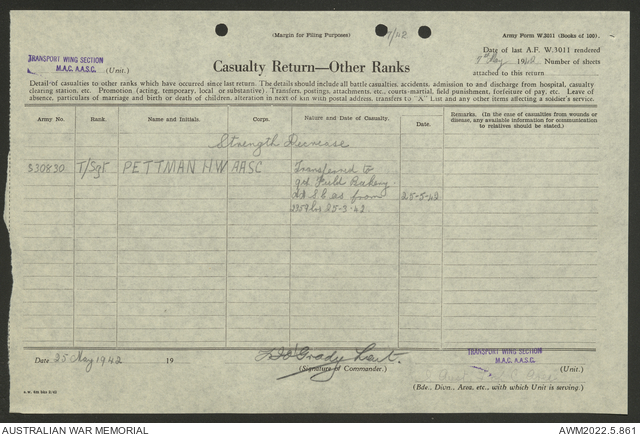 (Margin for Filing Purposes)
7/42
Army Form W.3011 (Books of 100).
Date of last A.F. W.3011 rendered
8th May 1942 Number of shorts
attached to this return
TRANSPORT WING SECTION
M.A.C. A.A.S.C. (Unit.)
Casualty Return—Other Ranks
Detail of casualties to other ranks which have occurred since last return. The details should include all battle casualties, accidents, admission to and discharge from hospital, casualty
clearing station, etc. Promotion (acting, temporary, local or substantive). Transfers, postings, attachments, etc., courts-martial, field punishment, forfeiture of pay, etc. Leave of
absence, particulars of marriage and birth or death of children, alteration in next of kin with postal address, transfers to "A" List and any other items affecting a soldier's service.
Army No. Rank. Name and Initials. Corps. Nature and Date of Casualty. Date. Remarks. (In the case of casualties from wounds or disease, any available information for communication to relatives should be stated.)
Strength Decrease
S30830 T/Sgt PETTMAN H.W AASC Transferred to
Field Bakery
as from 25-5-42
2359 hrs 25-3-42.
Date 25 May 1942 19
O'Grady Lieut.
(Signature of Commander.)
TRANSPORT WING SECTION
M.A.C. A.A.S.C. (Unit.)
(Bde., Divn., Area, etc., with which Unit is serving.)
AUSTRALIAN WAR MEMORIAL
AWM2022.5.861